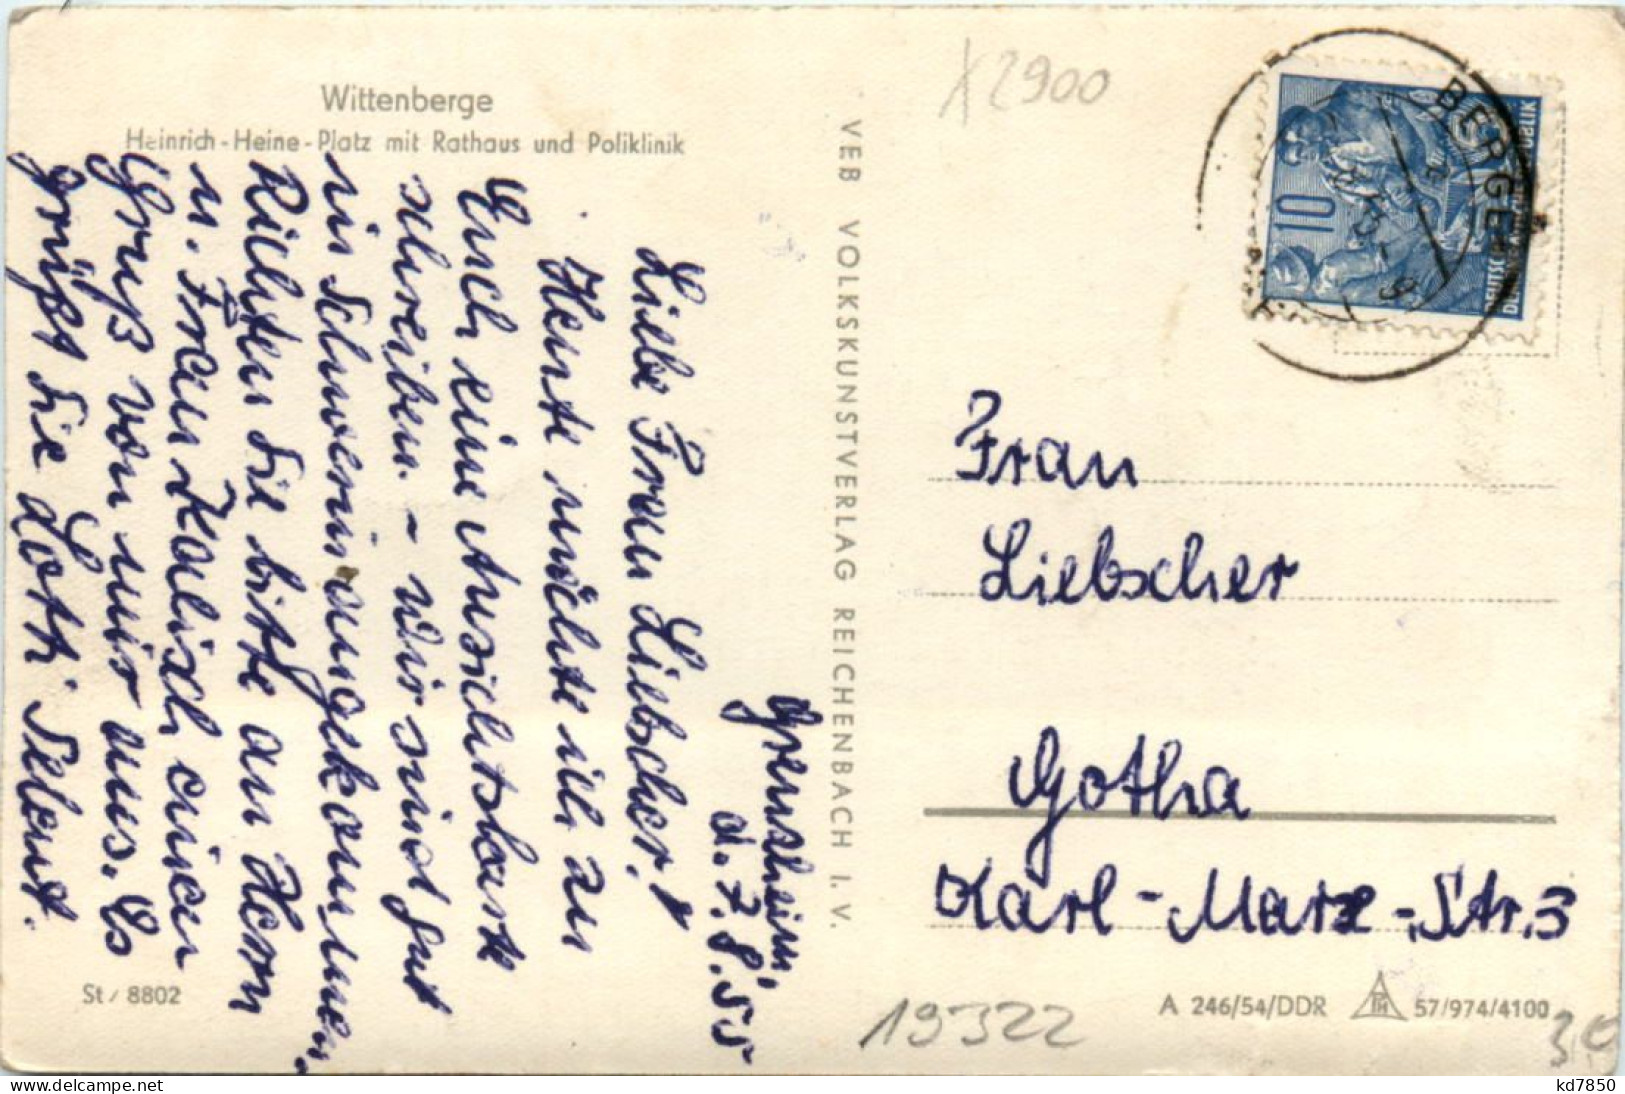 Wittenberge
Heinrich-Heine-Platz mit Rathaus und Poliklinik
X2900
d. 7.8.55
Liebe Frau Liebscher!
Heute möchte ich an
Euch eine Ansichtskarte
schreiben. - Wir sind gut
in Schwerin angekommen.
Richten Sie bitte an Herrn
u. Frau einen
Gruß von mir aus. Es
grüßt Sie Lothi
St/8802
VEB VOLKSKUNSTVERLAG REICHENBACH I. V.
BERGE
10
DEUTSCHE
Frau
Liebscher
Gotha
Karl-Marx-Str. 3
19322
A 246/54/DDR 57/974/4100
kd7850